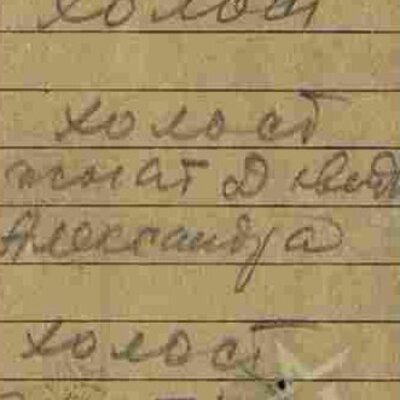 холост
холост
женат
Александра
холост